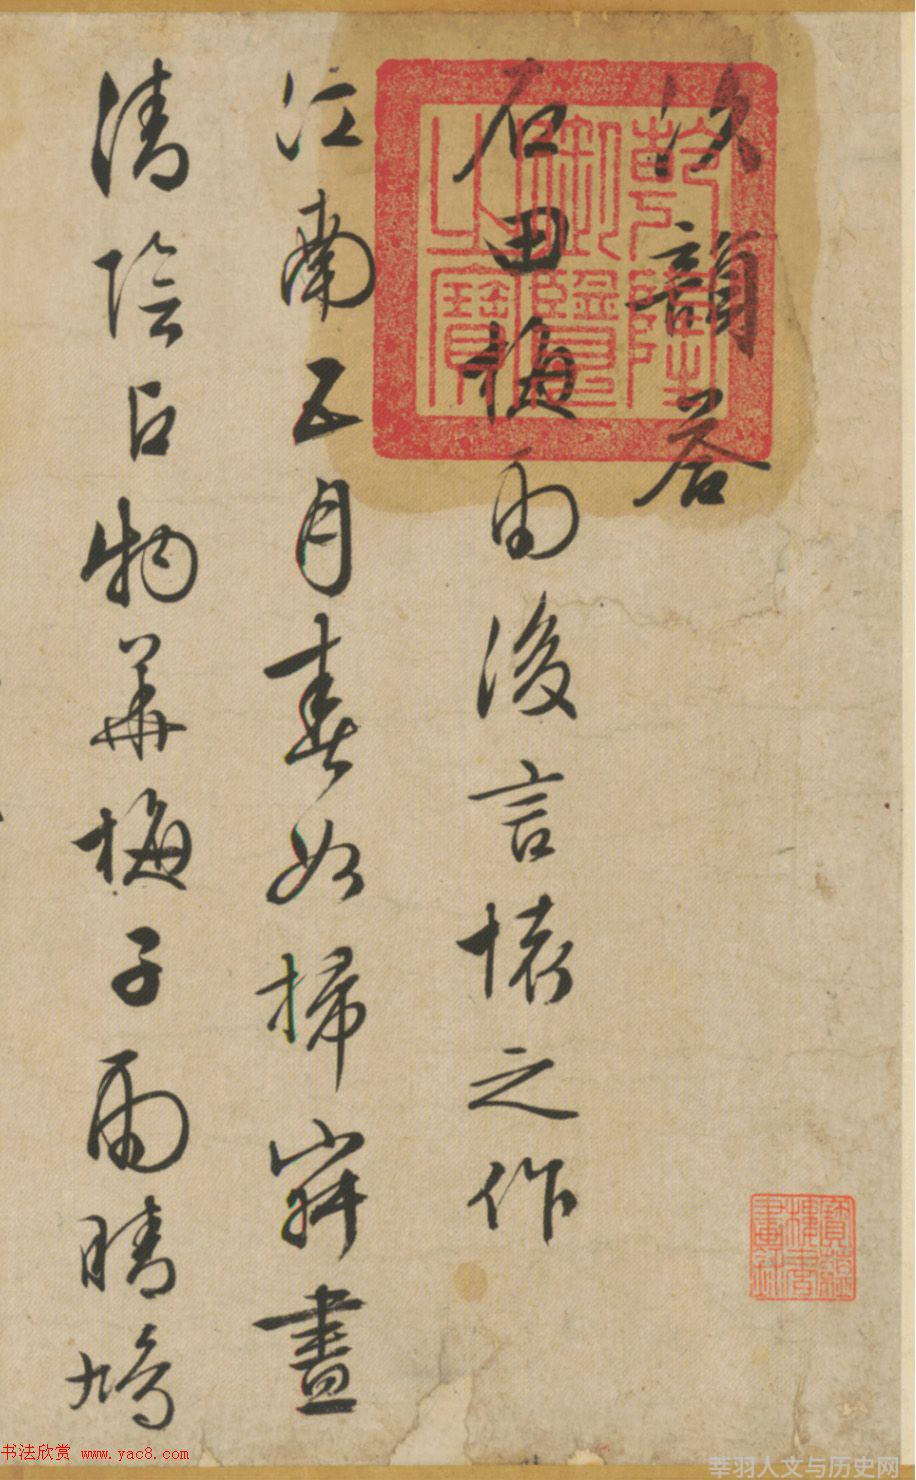 次韻答
石田梅雨後言懷之作
江南五月春如掃晝
清陰占物華梅子雨晴鳩
乾隆御覽之寶
寶蘊樓書畫錄
书法欣赏 www.yac8.com
莘羽人文与历史网